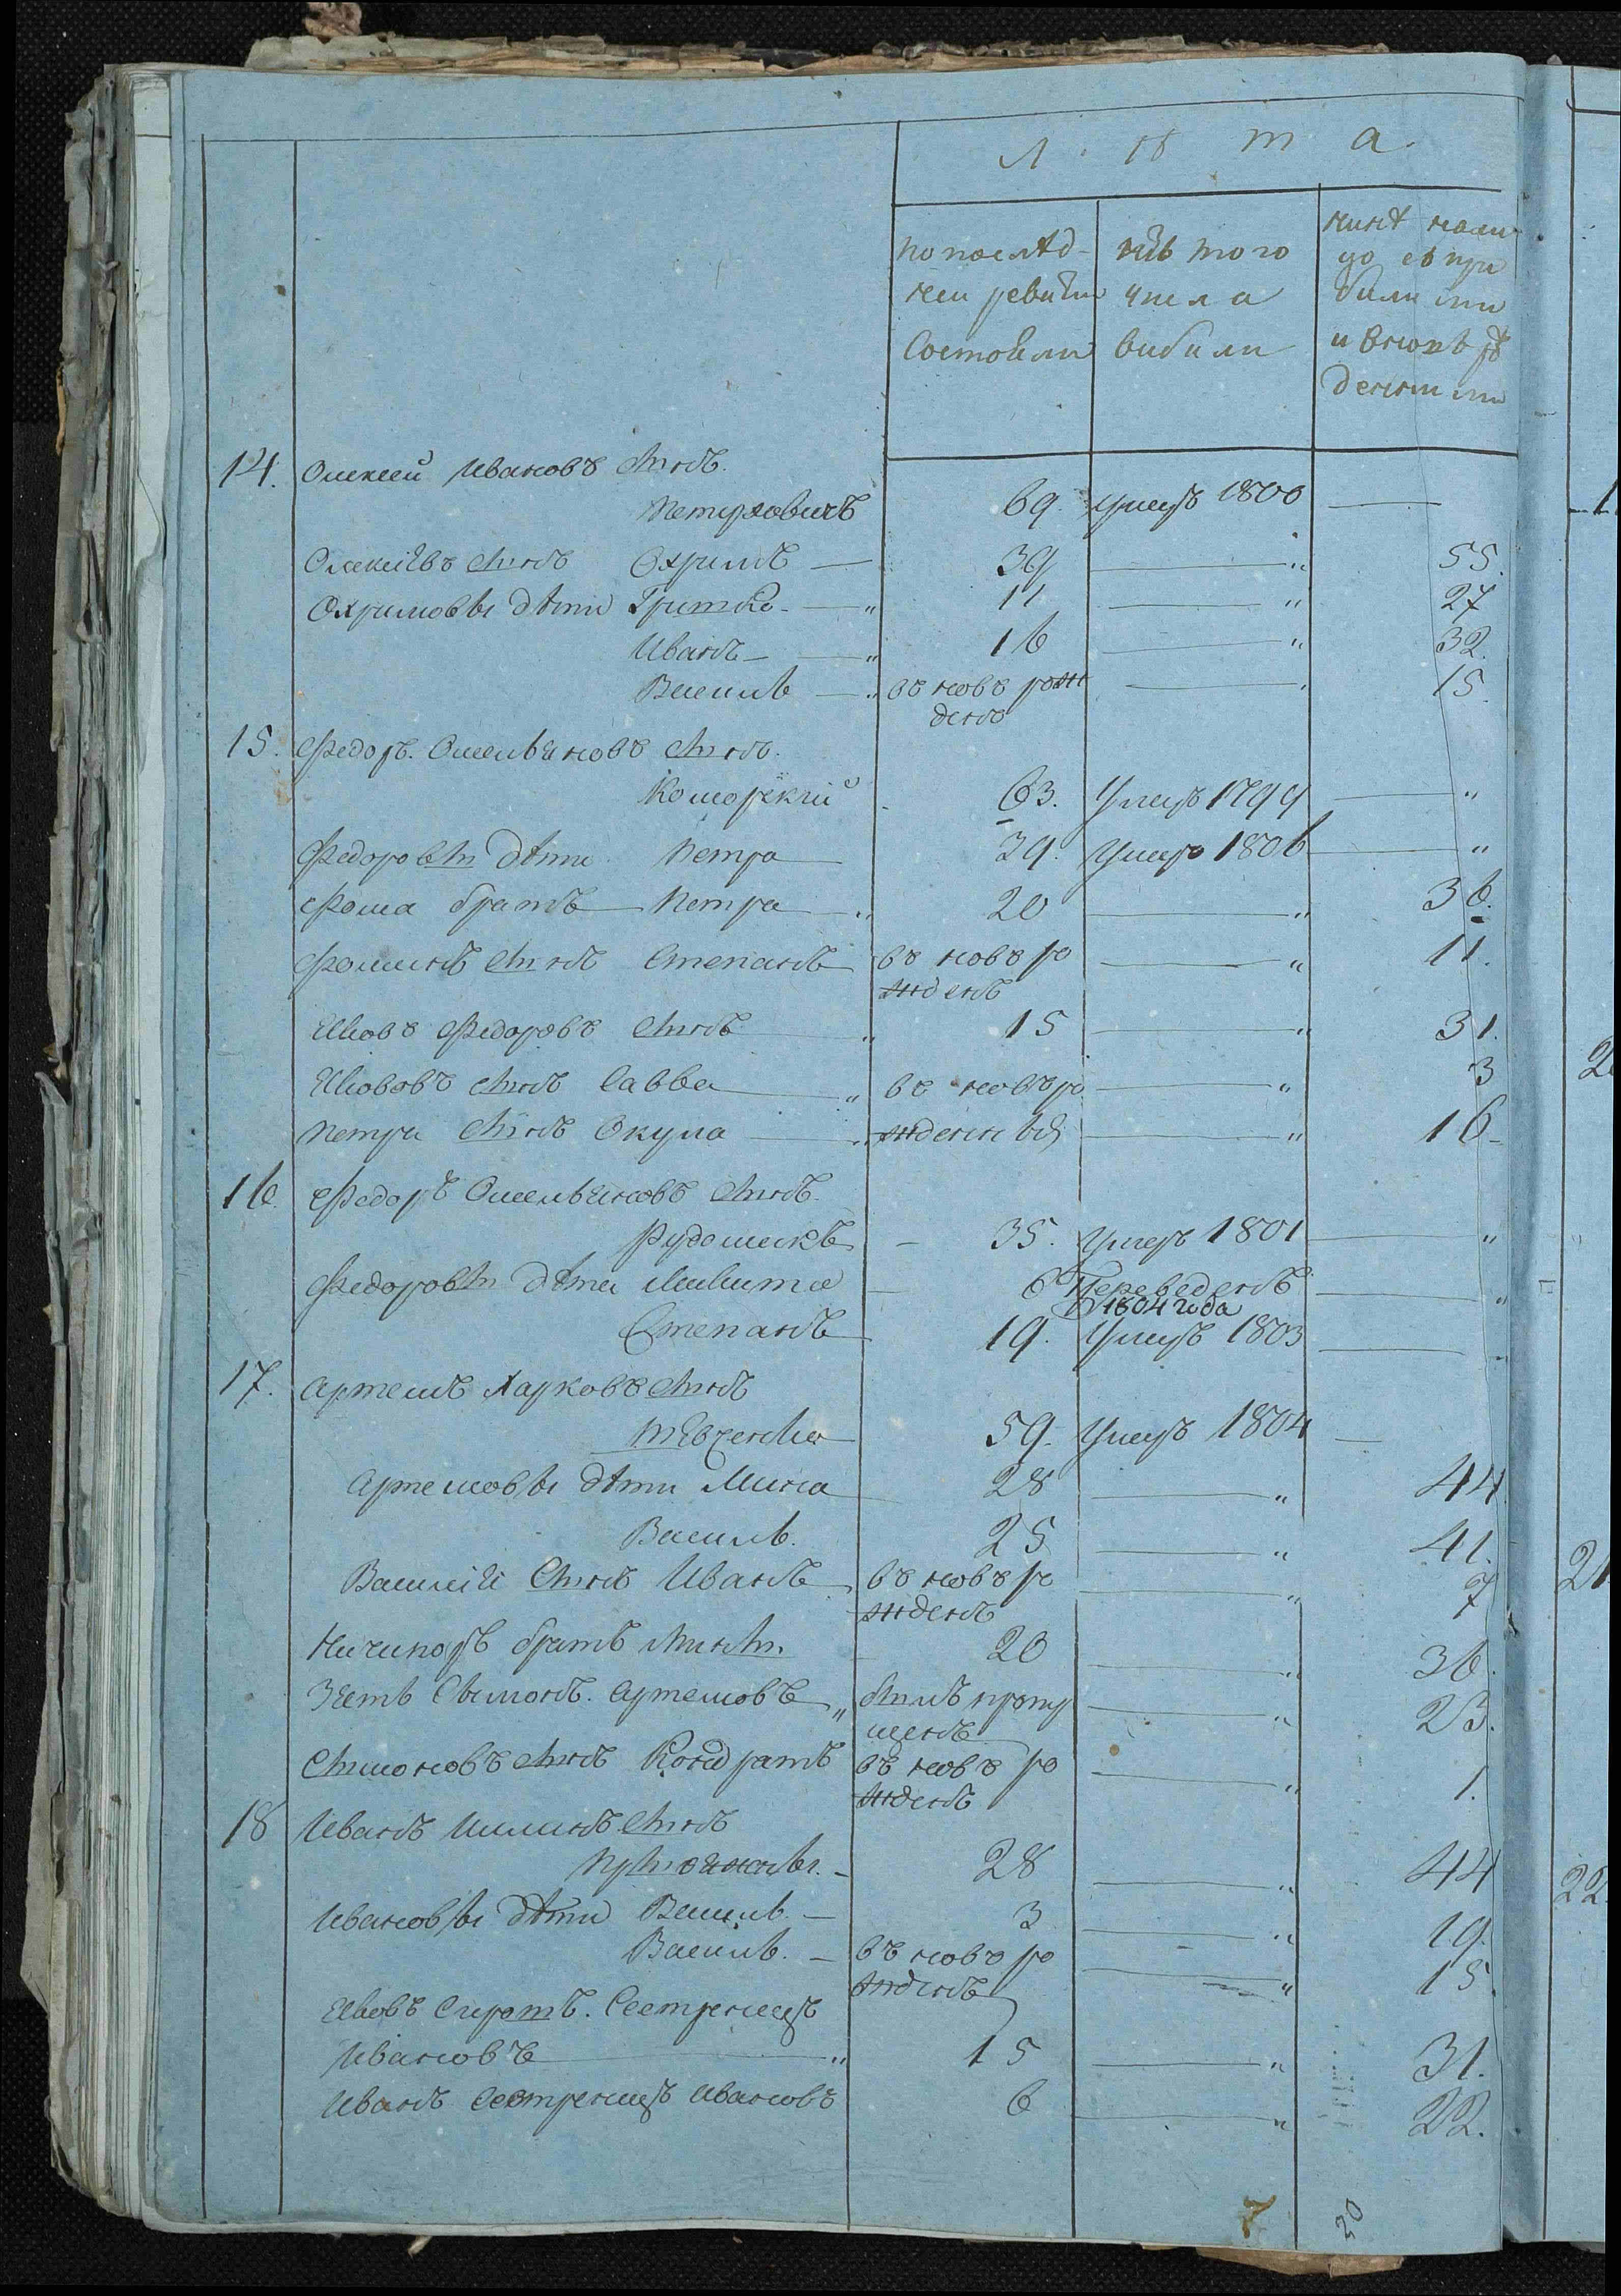 Лѣта.
по послѣд- изъ того нинѣ нали
ней ревизіи числа цо съ при
состояли вибили билими
и вновь рож
денними
14. Омелей Ивановъ сынъ.
Петруховичъ 69. умеръ 1800
Омелиевъ сынъ Охримъ — 39 — " 55.
Охримовы дѣти Грицко — " 11 — " 27
Иванъ — " 16 — " 32.
Василь — " въ новъ рож — 15.
денъ
15. Федоръ Омельяновъ сынъ.
Коморскій 63. Умеръ 1799 — "
Федоровы дѣти Петра 39. Умеръ 1806 — "
Фома братъ Петра — " 20 — " 36.
Фоминъ сынъ Степанъ въ новъ ро — " 11.
жденъ
Яковъ Федоровъ сынъ " 15 — " 31.
Якововъ сынъ Савва — " въ новъ ро — " 3
Петра сынъ Окула — " жденныя — " 16
16. Федоръ Омельяновъ сынъ.
— 35. Умеръ 1801 — "
Федоровы дѣти Микита — 6 Переведенъ — "
1804 года
Степанъ 19. Умеръ 1803 —
17. Артемъ Харковъ сынъ
Шевченко 59. Умеръ 1804 —
Артемовы дѣти Мина 28 — " 44
Василь. 25 — " 41.
Василія сынъ Иванъ въ новъ ро — " 7
жденъ
Ничипоръ братъ Мины. 20 — " 36.
Зять Сымонъ. Артемовъ " былъ пропу — " 23.
щенъ
Сымоновъ сынъ Кондратъ въ новъ ро — " 1.
жденъ
18 Иванъ сынъ
28 — " 44
Ивановы дѣти Василь. — 3 — " 19.
Василь. — въ новъ ро — " 15.
жденъ
Яковъ Сиротъ. Сестренецъ
Ивановъ — " 15 — " 31.
Иванъ Сестренецъ Ивановъ 6 — " 22.
30